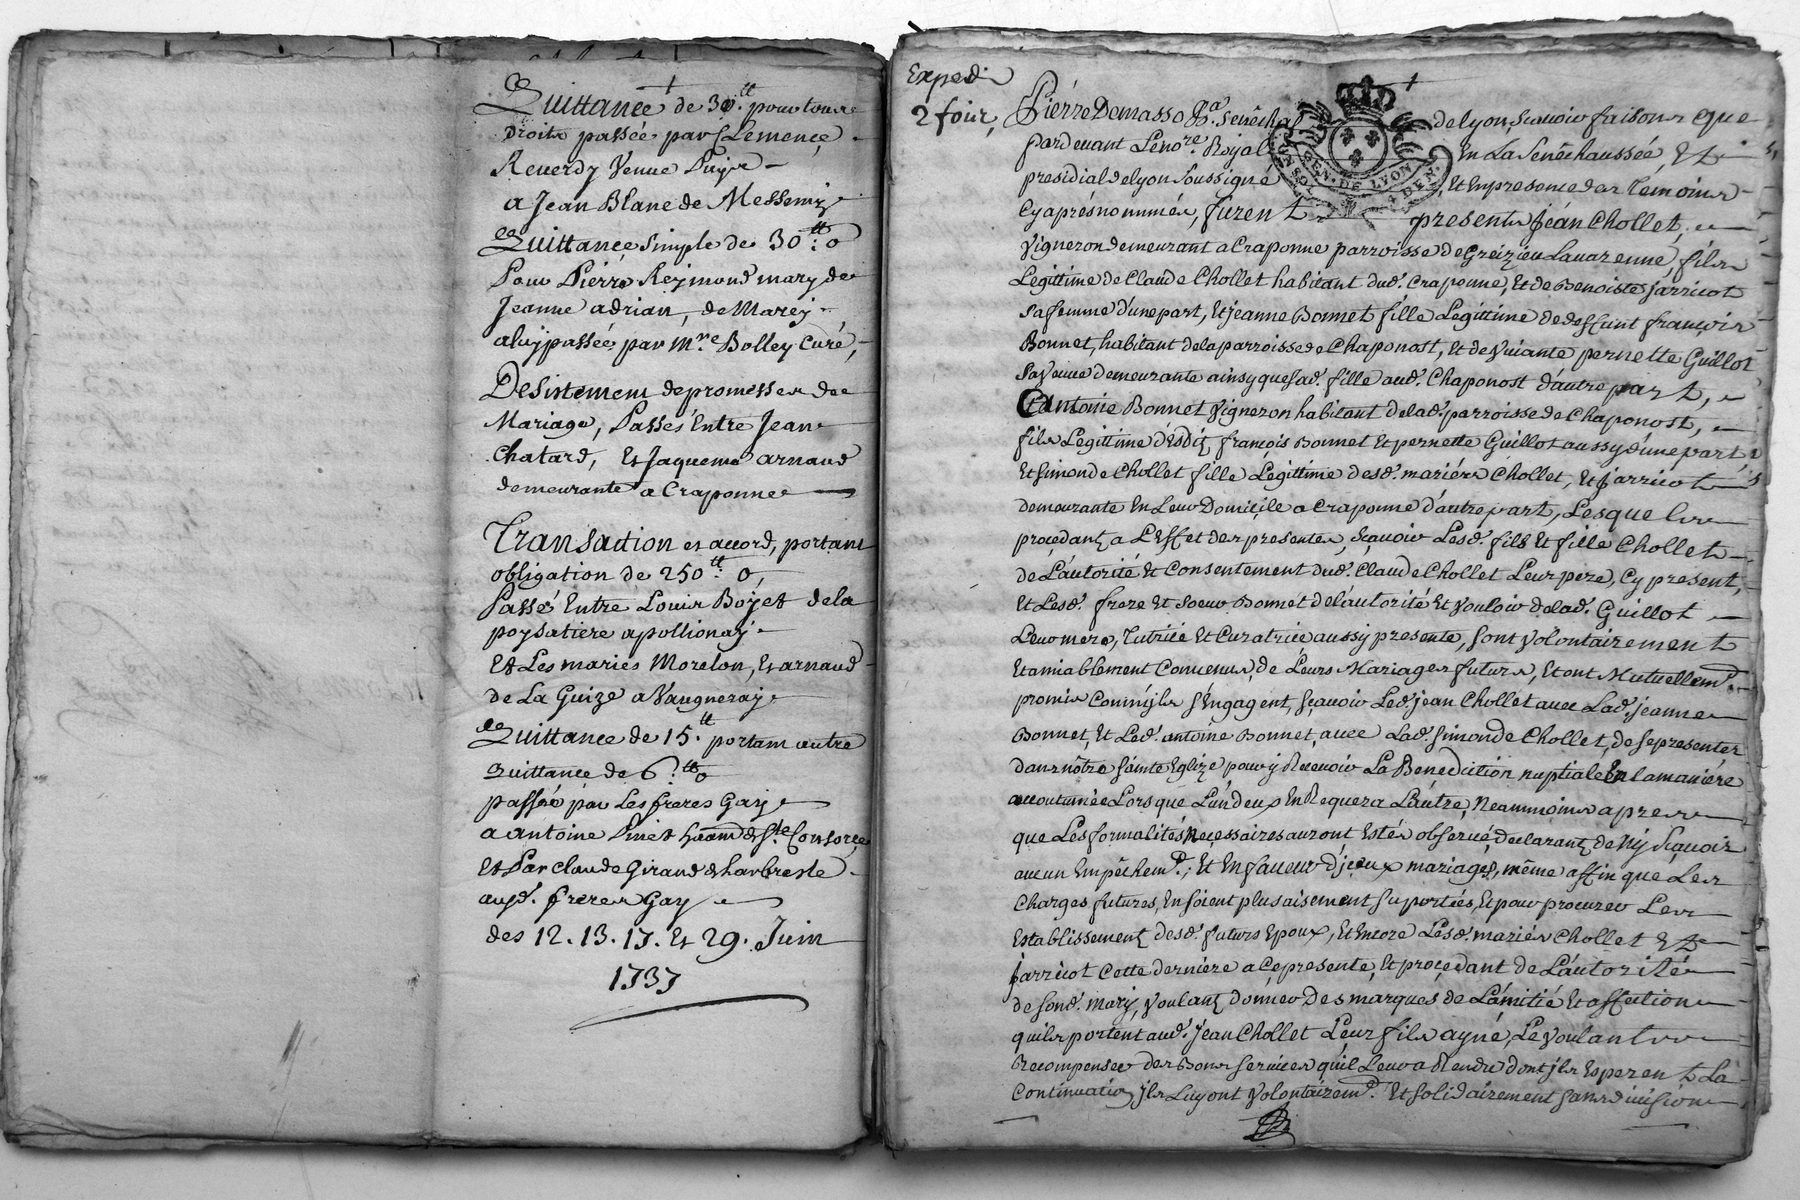 Quittance de 30.tt pour tous
droits passée par Clemence
Reverdy Veuve Puy
a Jean Blanc de Messemy
Quittance simple de 30tt. 0
Pour Pierre Reymond mary de
Jeanne adrian, de Marcy
a luy passée par Mre Bolley Curé,
Desistement de promesses de
Mariage, Passés Entre Jean
Chatard, Et Jaquema arnaud
demeurante a Craponne
Transaction et accord, portant
obligation de 250tt. 0,
Passé Entre Louis Boyet de la
poysatiere a pollionay
Et Les mariés Morelon, Et arnaud
de La Guize a Vaugneray
Quittance de 15.tt portant autre
quittance de 6.tt 0
passée par Les freres Gay
a antoine Pinet de Ste. Consorce
Et Par Claude Giraud de Larbresle
ausd. freres Gay
des 12. 13. 17. Et 29. Juin
1737
Exped.
2 fois,
Pierre Demasso Sa. Senéchal de Lyon, Sçavoir faisons que
pardevant Le nore. Royal En La Senéchaussée, Et
presidial de Lyon Soussigné, Et En presence des Temoins
Cy aprés nommés, furent presents Jean Chollet,
Vigneron demeurant a Craponne parroisse de Greizieu Lavarenne fils
Legittime de Claude Chollet habitant dud. Craponne, Et de Benoiste Jarricot
Sa femme d'une part, Et Jeanne Bonnet fille Legittime de deffunt françois
Bonnet, habitant de la parroisse de Chaponost, Et de Vivante pernette Guillot
Sa Veuve demeurante ainsy que sad. fille aud. Chaponost d'autre part,
Et Antoine Bonnet Vigneron habitant de lad. parroisse de Chaponost,
fils Legittime desdit françois Bonnet Et pernette Guillot aussy d'une part,
Et Simonde Chollet fille Legittime desd. mariés Chollet, Et Jarricot
demeurante En Leur Domicile a Craponne d'autre part, Lesquels
procedant a L'Effet des presentes, Sçavoir Lesd. fils Et fille Chollet
de L'autorité Et Consentement dud. Claude Chollet Leur pere, Cy present,
Et Lesd. frere Et Soeur Bonnet de L'autorité Et Vouloir de lad. Guillot
Leur mere, Tutrice Et Curatrice aussy presente, sont Volontairement
Et amiablement Convenus, de Leurs Mariages futurs, Et ont Mutuellemt.
promis Comm'jls S'Engagent, Sçavoir Led. jean Chollet avec Lad. jeanne
Bonnet, Et Led. antoine Bonnet, avec Lad. Simonde Chollet, de se presenter
dans nôtre Sainte Eglize pour y Recevoir La Benediction nuptiale En la maniere
accoutumée Lorsque L'un deux En Requera L'autre, Neammoins apres
que Les formalités Necessaires auront Estés observé, declarant de n'y Sçavoir
aucun Empêchemt.; Et En faveur d'jceux mariages, même affin que Les
Charges futures, En soient plus aisement Suportées, Et pour procurer Les
Establissement desd. futurs Epoux, Et Encore Lesd. mariés Chollet Et
Jarricot Cette derniere a Ce presente, Et procedant de L'autorité
de sond. Mary, Voulant donner Des marques de L'amitié Et affection
quils portent aud. Jean Chollet Leur fils ayné, Le Voulant
Recompenser des Bons Services quil Leur a Rendu dont jls Esperent La
Continuation, jls Luy ont Volontairemt. Et Solidairement sans division